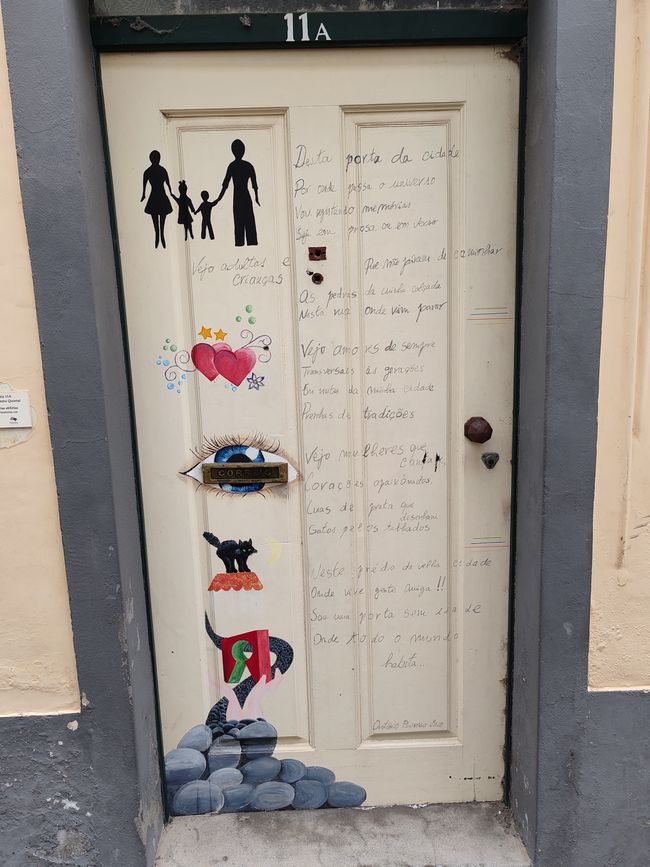 11A
Desta porta da cidade
Por onde passa o universo
Vou registando memórias
Seja em prosa ou em verso
Vejo adultos e
crianças
Que não param de caminhar
As pedras da minha calçada
Nesta rua onde vim parar
Vejo amores de sempre
Transversais às gerações
Em noites da minha cidade
Prenhas de tradições
Vejo mulheres que
cantam
Corações apaixonados
Luas de prata que
desenham
Gatos pelos telhados
CORREIO
Neste prédio da velha cidade
Onde vive gente amiga!!
Sou uma porta sem idade
Onde todo o mundo
habita...